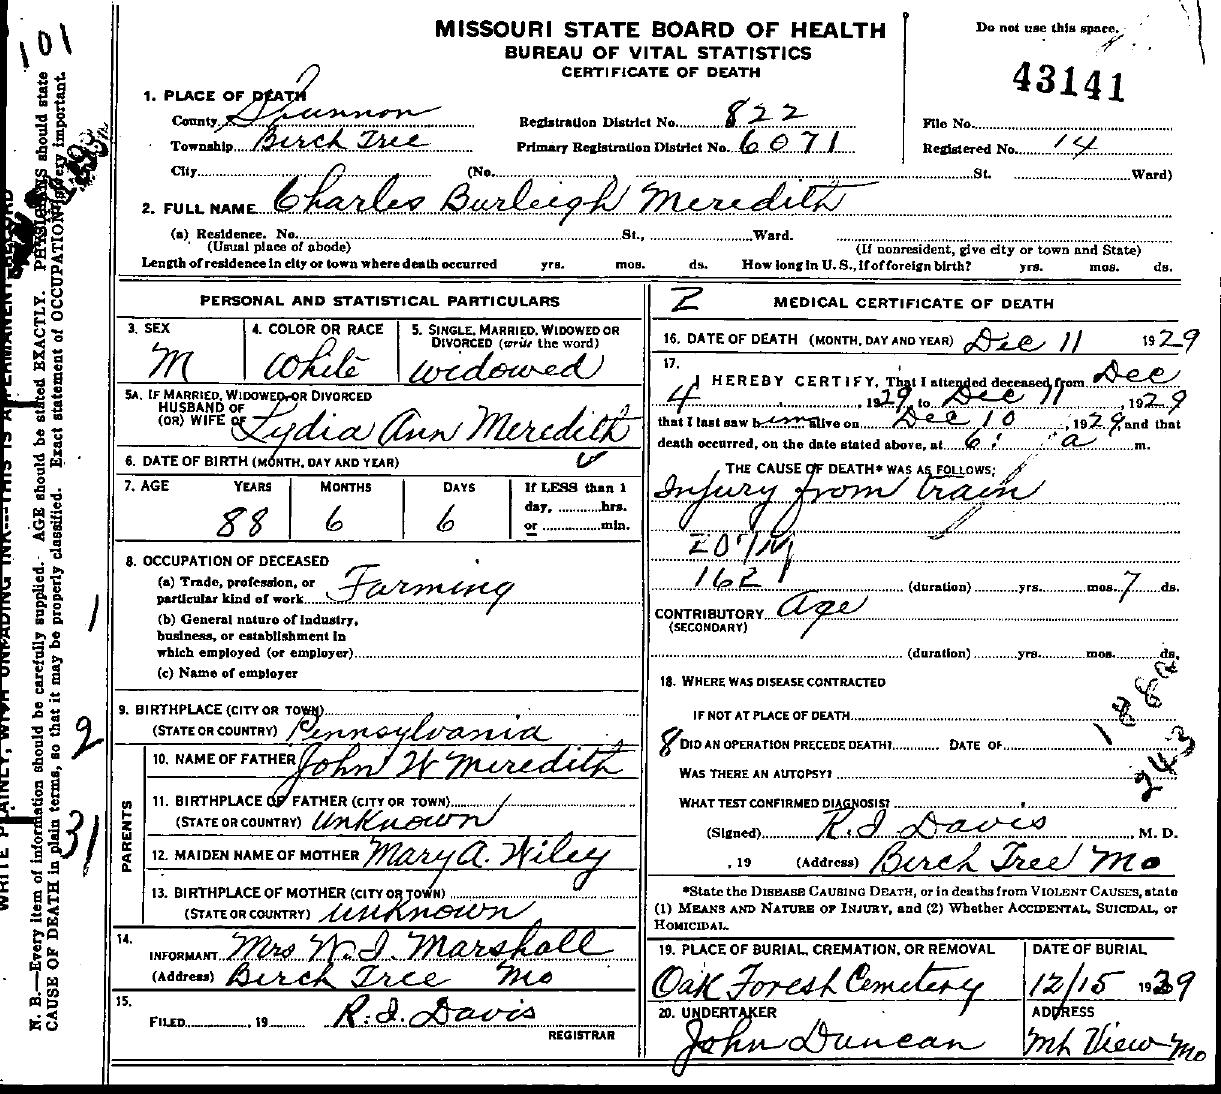 MISSOURI STATE BOARD OF HEALTH
BUREAU OF VITAL STATISTICS
CERTIFICATE OF DEATH
Do not use this space.
43141
101
1. PLACE OF DEATH
County Shannon
Township Birch Tree
City (No. St. Ward)
Registration District No. 822
Primary Registration District No. 6071
File No.
Registered No. 14
2. FULL NAME Charles Burleigh Meredith
(a) Residence. No. St., Ward.
(Usual place of abode) (If nonresident, give city or town and State)
Length of residence in city or town where death occurred yrs. mos. ds. How long in U. S., if of foreign birth? yrs. mos. ds.
PERSONAL AND STATISTICAL PARTICULARS
3. SEX
M
4. COLOR OR RACE
White
5. SINGLE, MARRIED, WIDOWED OR
DIVORCED (write the word)
widowed
5A. IF MARRIED, WIDOWED, OR DIVORCED
HUSBAND OF
(OR) WIFE OF Lydia Ann Meredith
6. DATE OF BIRTH (MONTH, DAY AND YEAR)
7. AGE YEARS MONTHS DAYS
88 6 6
If LESS than 1
day, hrs.
or min.
8. OCCUPATION OF DECEASED
(a) Trade, profession, or
particular kind of work Farming
(b) General nature of industry,
business, or establishment in
which employed (or employer)
(c) Name of employer
9. BIRTHPLACE (CITY OR TOWN)
(STATE OR COUNTRY) Pennsylvania
PARENTS
10. NAME OF FATHER John W Meredith
11. BIRTHPLACE OF FATHER (CITY OR TOWN)
(STATE OR COUNTRY) unknown
12. MAIDEN NAME OF MOTHER Mary A. Wiley
13. BIRTHPLACE OF MOTHER (CITY OR TOWN)
(STATE OR COUNTRY) unknown
14.
INFORMANT Mrs W. I. Marshall
(Address) Birch Tree Mo
15.
FILED , 19 R. I. Davis
REGISTRAR
2 MEDICAL CERTIFICATE OF DEATH
16. DATE OF DEATH (MONTH, DAY AND YEAR) Dec 11 1929
17.
I HEREBY CERTIFY, That I attended deceased from Dec
4, 1929, to Dec 11, 1929
that I last saw him alive on Dec 10, 1929, and that
death occurred, on the date stated above, at 6: a m.
THE CAUSE OF DEATH* WAS AS FOLLOWS:
Injury from train
162
(duration) yrs. mos. 7 ds.
CONTRIBUTORY Age
(SECONDARY)
(duration) yrs. mos. ds.
18. WHERE WAS DISEASE CONTRACTED
IF NOT AT PLACE OF DEATH
8 DID AN OPERATION PRECEDE DEATH? DATE OF
WAS THERE AN AUTOPSY?
WHAT TEST CONFIRMED DIAGNOSIS?
(Signed) R. I. Davis, M. D.
, 19 (Address) Birch Tree Mo
*State the DISEASE CAUSING DEATH, or in deaths from VIOLENT CAUSES, state
(1) MEANS AND NATURE OF INJURY, and (2) Whether ACCIDENTAL, SUICIDAL, or
HOMICIDAL.
19. PLACE OF BURIAL, CREMATION, OR REMOVAL
Oak Forest Cemetery
DATE OF BURIAL
12/15 1929
20. UNDERTAKER
John Duncan
ADDRESS
Mt. View Mo
1
2
31
N. B.—Every item of information should be carefully supplied. AGE should be stated EXACTLY. PHYSICIANS should state
CAUSE OF DEATH in plain terms, so that it may be properly classified. Exact statement of OCCUPATION is very important.